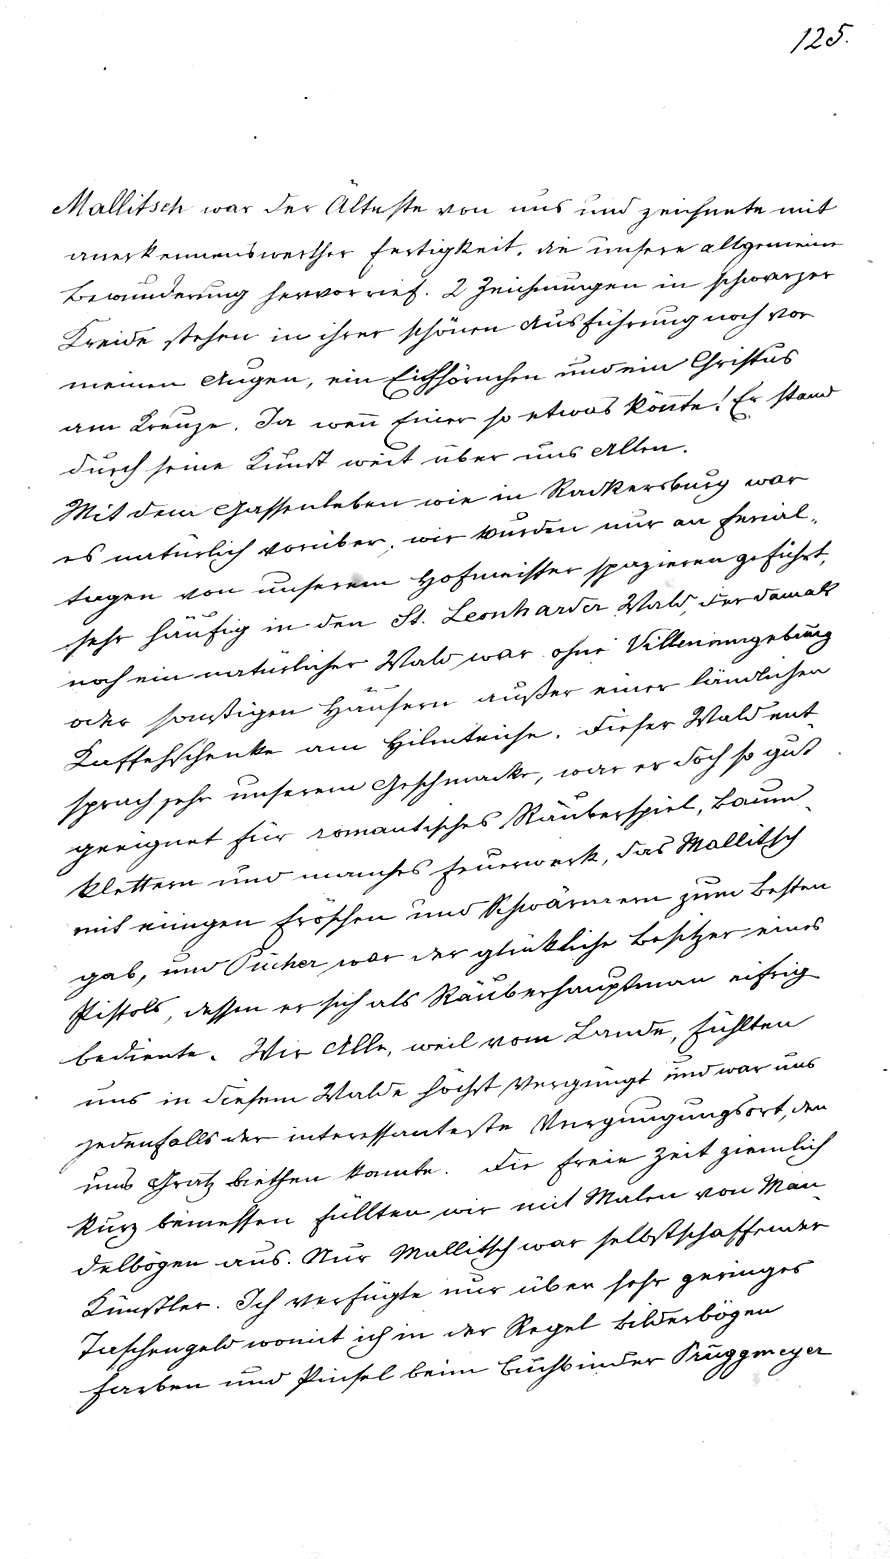 125.
Mallitsch war der Älteste von uns und zeichnete mit
anerkennenswerther Fertigkeit, die unsere allgemeine
Bewunderung hervorrief. 2 Zeichnungen in schwarzer
Kreide stehen in ihrer schönen Ausführung noch vor
meinen Augen, ein Eichhörnchen und ein Christus
am Kreuze. Ja weñ Einer so etwas köñte! Er stand
durch seine Kunst weit über uns Allen.
Mit dem Gassenleben wie in Radkersburg war
es natürlich vorüber, wir wurden nur an Ferial-
tagen von unserem Hofmeister spazieren geführt,
sehr häufig in den St. Leonharder Wald, der damals
noch ein natürlicher Wald war ohne Villenumgebung
oder sonstigen Häusern außer einer ländlichen
Kaffehschenke am Hilmteiche. Dieser Wald ent-
sprach sehr unserem Geschmacke, war er doch so gut
geeignet für romantisches Räuberspiel, Baum-
klettern und manches Feuerwerk, das Mallitsch
mit einigen Fröschen und Schwärmern zum Besten
gab, und Pucher war der glückliche Besitzer eines
Pistols, dessen er sich als Räuberhauptman eifrig
bediente. Wir Alle, weil vom Lande, fühlten
uns in diesem Walde höchst vergnügt und war uns
jedenfalls der interessanteste Vergnügungsort, den
uns Gratz biethen konnte. Die freie Zeit ziemlich
kurz bemessen füllten wir mit Malen von Man-
delbögen aus. Nur Mallitsch war selbstschaffender
Künstler. Ich verfügte nur über sehr geringes
Taschengeld womit ich in der Regel Bilderbögen
Farben und Pinsel beim Buchbinder Pruggmeyer